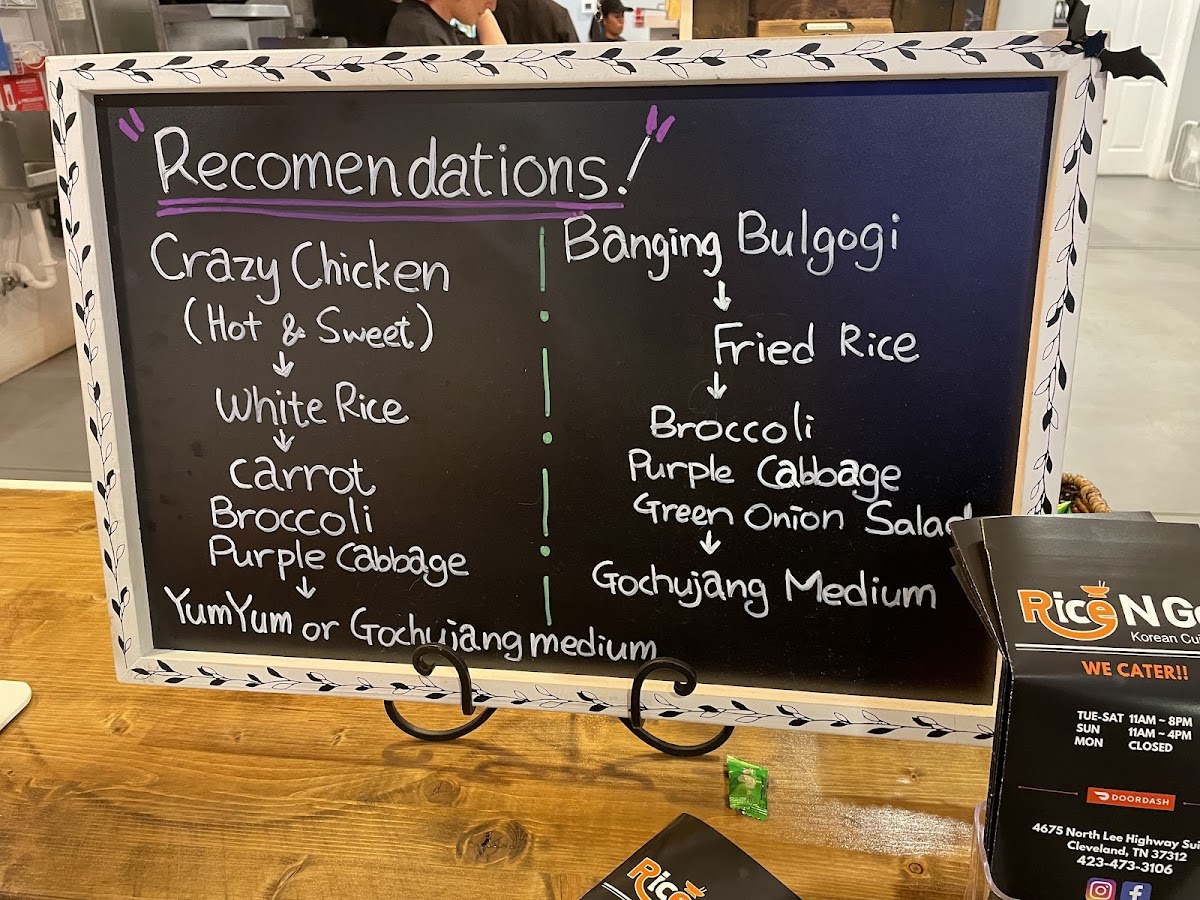 "Recomendations!"
Crazy Chicken
(Hot & Sweet)
↓
White Rice
↓
carrot
Broccoli
Purple Cabbage
↓
YumYum or Gochujang medium
Banging Bulgogi
↓
Fried Rice
↓
Broccoli
Purple Cabbage
Green Onion Salad
↓
Gochujang Medium
Rice N
Korean
WE CATER!!
TUE-SAT 11AM ~ 8PM
SUN 11AM ~ 4PM
MON CLOSED
DOORDASH
4675 North Lee Highway
Cleveland, TN 37312
423-473-3106
Rice